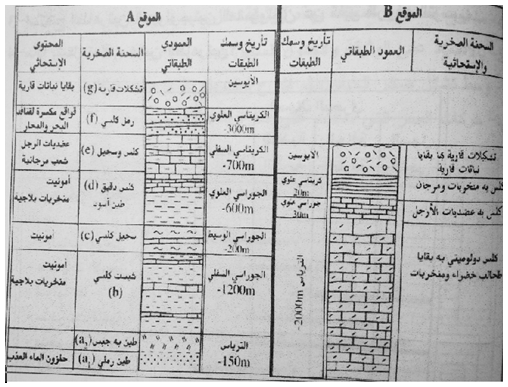 الموقع A
المحتوى الإستحاثي
السحنة الصخرية
العمودي الطبقاتي
تأريخ وسمك الطبقات
بقايا نباتات قارية
تشكلات قارية (g)
الأيوسين
قواقع مكسرة لقنافذ البحر والمحار
رمل كلسي (f)
الكريتاسي العلوي
-3000m
عضديات الرجل
شعب مرجانية
كلس وسحيل (e)
الكريتاسي السفلي
-700m
أمونيت
منخريات بلاجية
كلس دقيق (d)
طين أسود
الجوراسي العلوي
-600m
أمونيت
سحيل كلسي (c)
الجوراسي الوسيط
-200m
أمونيت
منخريات بلاجية
شيست كلسي
(b)
الجوراسي السفلي
-1200m
طين به جبس (a₂)
حلزون الماء العذب
طين رملي (a₁)
الترياس
-150m
الموقع B
تأريخ وسمك الطبقات
العمود الطبقاتي
السحنة الصخرية والإستحاثية
الأيوسين
تشكلات قارية بها بقايا نباتات قارية
كريتاسي علوي
20m
كلس به منخريات ومرجان
جوراسي علوي
30m
كلس به عضديات الأرجل
الترياس
-2000m
كلس دولوميتي به بقايا طحالب خضراء ومنخريات